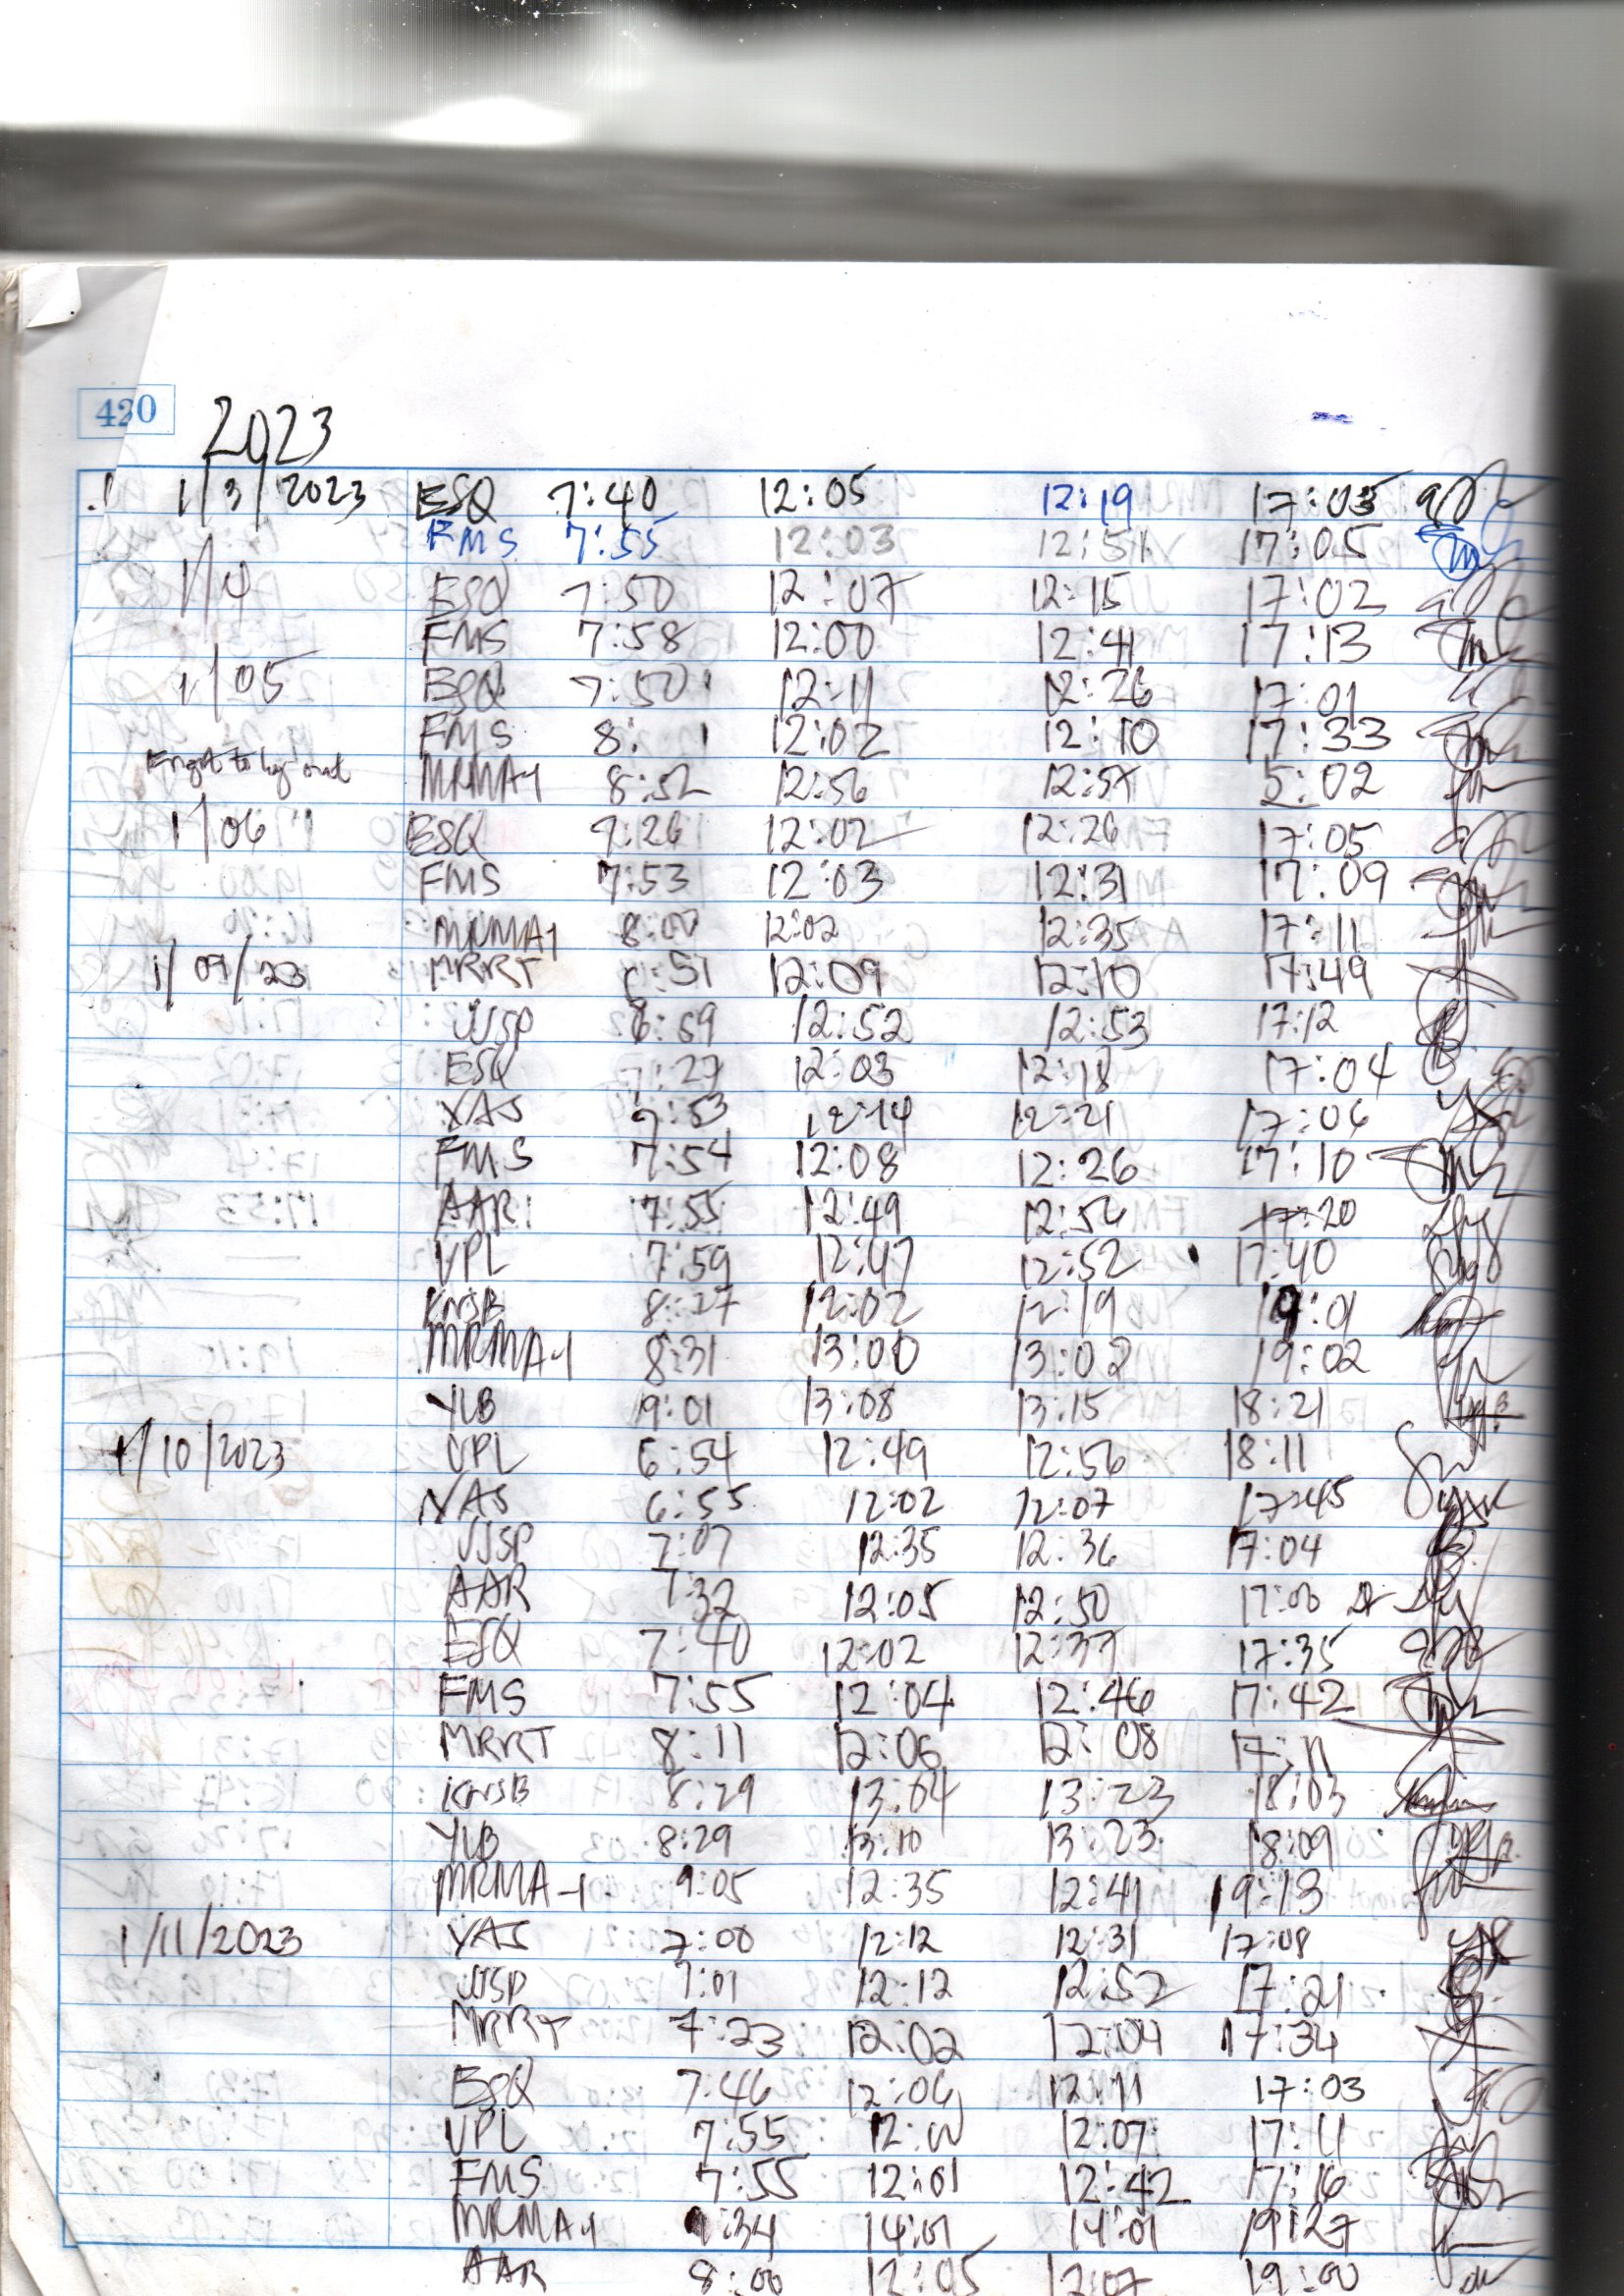 420
2023
1/3/2023 ESQ 7:40 12:05 12:19 17:03
FMS 7:55 12:03 12:51 17:05
1/4 ESQ 7:50 12:07 12:15 17:02
FMS 7:58 12:00 12:41 17:13
1/05 ESQ 7:50 12:11 12:26 17:01
FMS 8: 12:02 12:10 17:33
Forgot to log out MRMA-1 8:52 12:56 12:57 5:02
1/06 ESQ 7:26 12:02 12:26 17:05
FMS 7:53 12:03 12:31 17:09
MRMA-1 8:00 12:02 12:35 17:11
1/09/23 MRRT :51 12:09 12:10 17:49
JJSP 6:59 12:52 12:53 17:12
ESQ 7:27 12:03 12:18 17:04
YAS 7:53 12:14 12:21 17:06
FMS 7:54 12:08 12:26 17:10
AAR 7:55 12:49 12:56 17:20
VPL 7:59 12:47 12:52 17:40
KNSB 8:27 12:02 12:19 19:01
MRMA-1 8:31 13:00 13:02 19:02
YLB 9:01 13:08 13:15 18:21
1/10/2023 VPL 6:54 12:49 12:56 18:11
YAS 6:55 12:02 12:07 17:45
JJSP 7:07 12:35 12:36 17:04
AAR 7:32 12:05 12:50 17:00
ESQ 7:40 12:02 12:37 17:35
FMS 7:55 12:04 12:46 17:42
MRRT 8:11 12:06 12:08 17:11
KNSB 8:29 13:04 13:23 18:03
YLB 8:29 13:10 13:23 18:09
MRMA-1 9:05 12:35 12:41 19:13
1/11/2023 YAS 7:00 12:12 12:31 17:08
JJSP 7:01 12:12 12:52 17:21
MRRT 7:23 12:02 12:04 17:34
ESQ 7:46 12:06 12:11 17:03
VPL 7:55 12:00 12:07 17:11
FMS 7:55 12:01 12:42 17:16
MRMA-1 :34 14:01 14:01 19:27
AAR 8:00 12:05 12:07 19:00